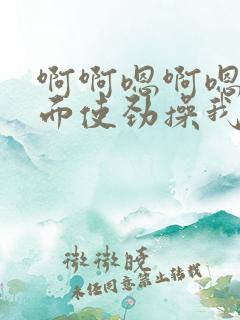 啊啊嗯啊嗯
而使劲操我
微微晓
未经同意禁止转载